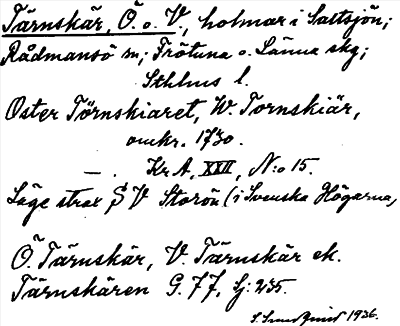 Tärnskär, Ö. o. V., holmar i Saltsjön;
Rådmansö sn; Frötuna o. Länna skg;
Sthlms l.
Oster Törnskiaret, W. Tornskiär,
omkr. 1730.
— . Kr A, XXII, N:o 15.
Läge strax SV Storön (i Svenska Högarna,
Ö. Tärnskär, V. Tärnskär ek.
Tärnskären G. 77, Sj: 235.
1936.